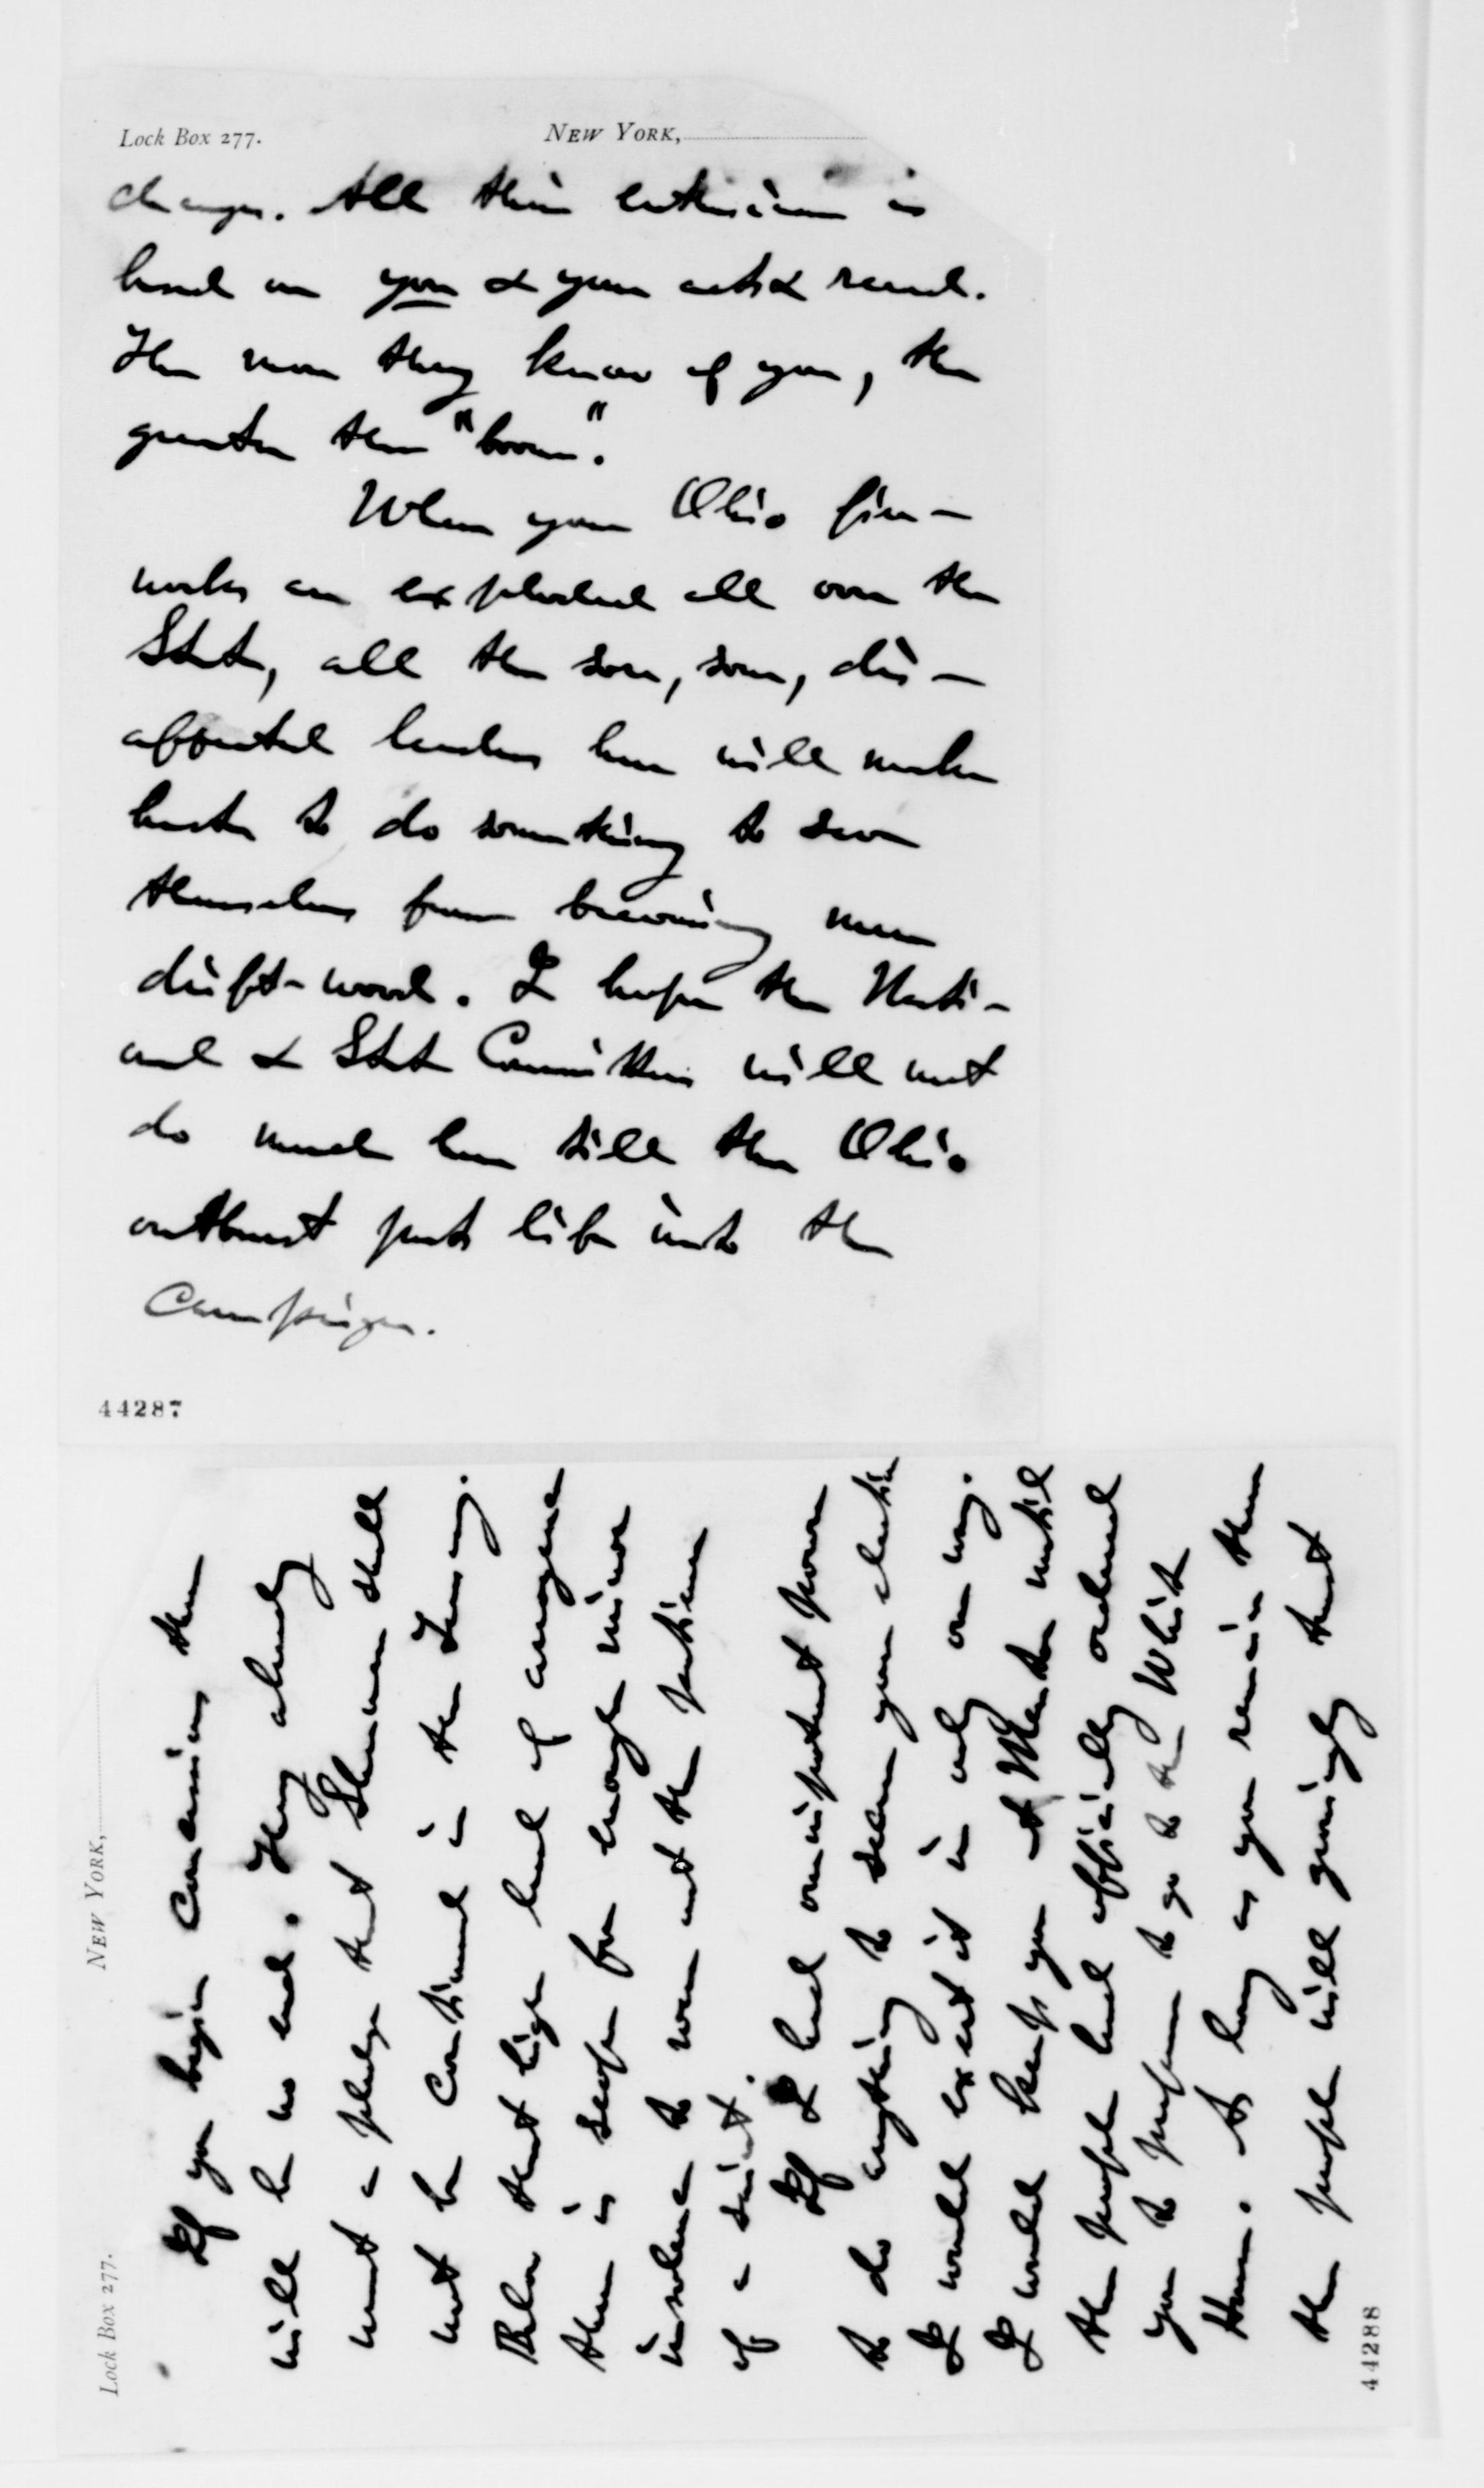 Lock Box 277. NEW YORK,
change. All their enthusiasm is
based on you & your acts & record.
The more they know of you, the
greater their "boom".
When your Ohio fire-
works are exploded all over the
State, all the sore, sour, dis-
appointed leaders here will make
haste to do something to save
themselves from becoming mere
drift-wood. I hope the Nati-
onal & State Committees will not
do much here till the Ohio
outburst puts life into the
Campaign.
44287
Lock Box 277. NEW YORK,
If you begin concessions there
will be no end. They already
want a pledge that Sherman shall
not be continued in the Treasury.
Rule that tiger bred of arrogance
there is scope for enough minor
insolence to wear out the patience
of a saint.
If I had omnipotent power
to do anything to secure your election
I would exert it in only one way.
I would keep you at Mentor until
the people had officially ordered
you to prepare to go to the White
House. As long as you remain there
the people will grow
44288